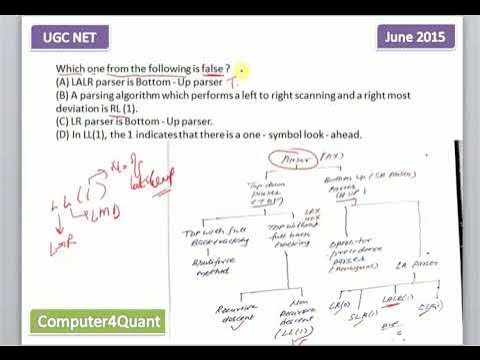 UGC NET
June 2015
Which one from the following is false ?
(A) LALR parser is Bottom - Up parser T.
(B) A parsing algorithm which performs a left to right scanning and a right most
deviation is RL (1).
(C) LR parser is Bottom - Up parser.
(D) In LL(1), the 1 indicates that there is a one - symbol look - ahead.
No. of
look ahead
LL(1)
LMD
L→R
Parser
Top down
parser
(TDP)
Bottom Up (SR Parser)
Parser
TDP with full
Backtracking
TDP without
full back
tracking
Bruteforce
method
Operator
precedence
parser
LR Parser
Recursive
descent
Non
Recursive
descent
(LL(1))
LR(0)
SLR(1)
LALR(1)
CLR(1)
Computer4Quant